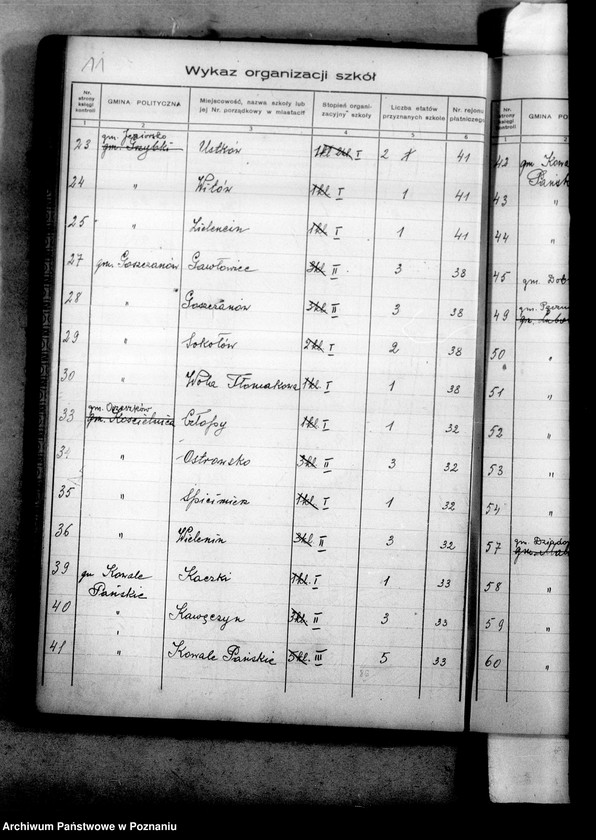 11
Wykaz organizacji szkół
Nr. strony księgi kontroli | GMINA POLITYCZNA | Miejscowość, nazwa szkoły lub jej Nr. porządkowy w miastach | Stopień organizacyjny szkoły | Liczba etatów przyznanych szkole | Nr. rejonu płatniczego
1 | 2 | 3 | 4 | 5 | 6
23 | gm. | Ustków | I | 2 | 41
24 | " | Wilów | 1kl I | 1 | 41
25 | " | Zielencin | 1kl I | 1 | 41
27 | gm. Goszczanów | Gawłowice | 3kl II | 3 | 38
28 | " | Goszczanów | 3kl II | 3 | 38
29 | " | Sokołów | 2kl I | 2 | 38
30 | " | Wola Tłomakowa | 1kl I | 1 | 38
33 | gm. Orzeszków gm. Kościelnica | Człopy | 1kl I | 1 | 32
34 | " | Ostrowsko | 3kl II | 3 | 32
35 | " | Spicimierz | 1kl I | 1 | 32
36 | " | Wielenin | 3kl II | 3 | 32
39 | gm Kowale Pańskie | Kaczki | 1kl I | 1 | 33
40 | " | Kawęczyn | 3kl II | 3 | 33
41 | " | Kowale Pańskie | 5kl. III | 5 | 33
Nr. strony księgi kontroli | GMINA PO
1 | 2
42 | gm Kowa Pańsk
43 | "
44 | "
45 | gm. Dob
49 | gm.
50 | "
51 | "
52 | "
53 | "
54 | "
57 | gm.
58 | "
59 | "
60 | "
Archiwum Państwowe w Poznaniu